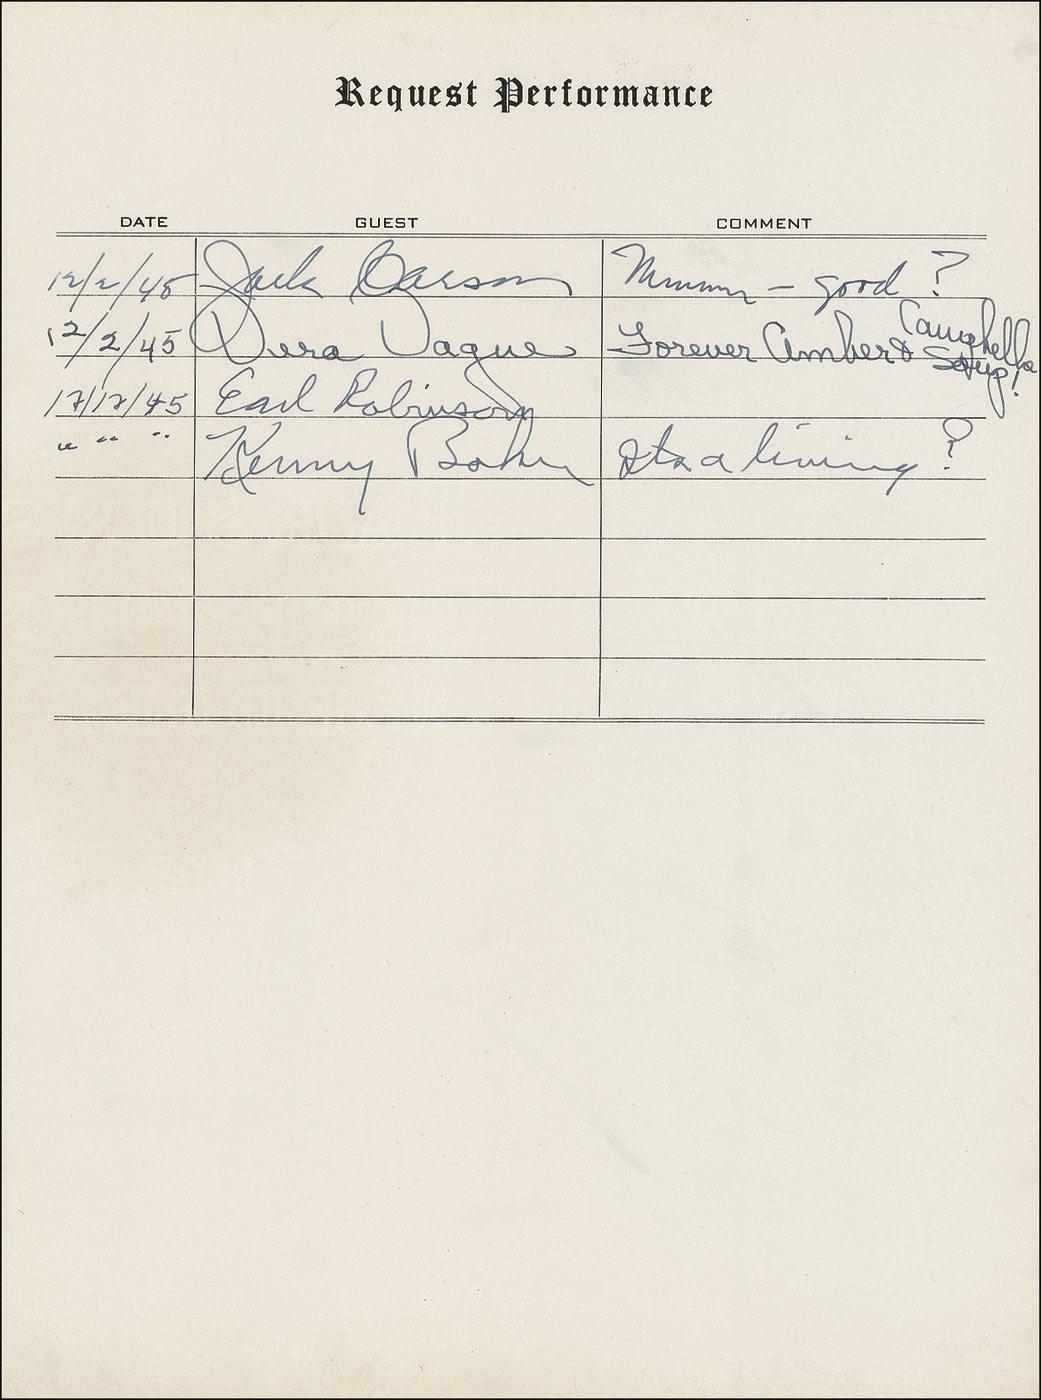 Request Performance
DATE GUEST COMMENT
12/2/45 Jack Carson Mmmm - good ?
12/2/45 Vera Vague Forever Amber & Campbells Soup!
12/17/45 Earl Robinson
" " " Kenny Baker Its a living ?